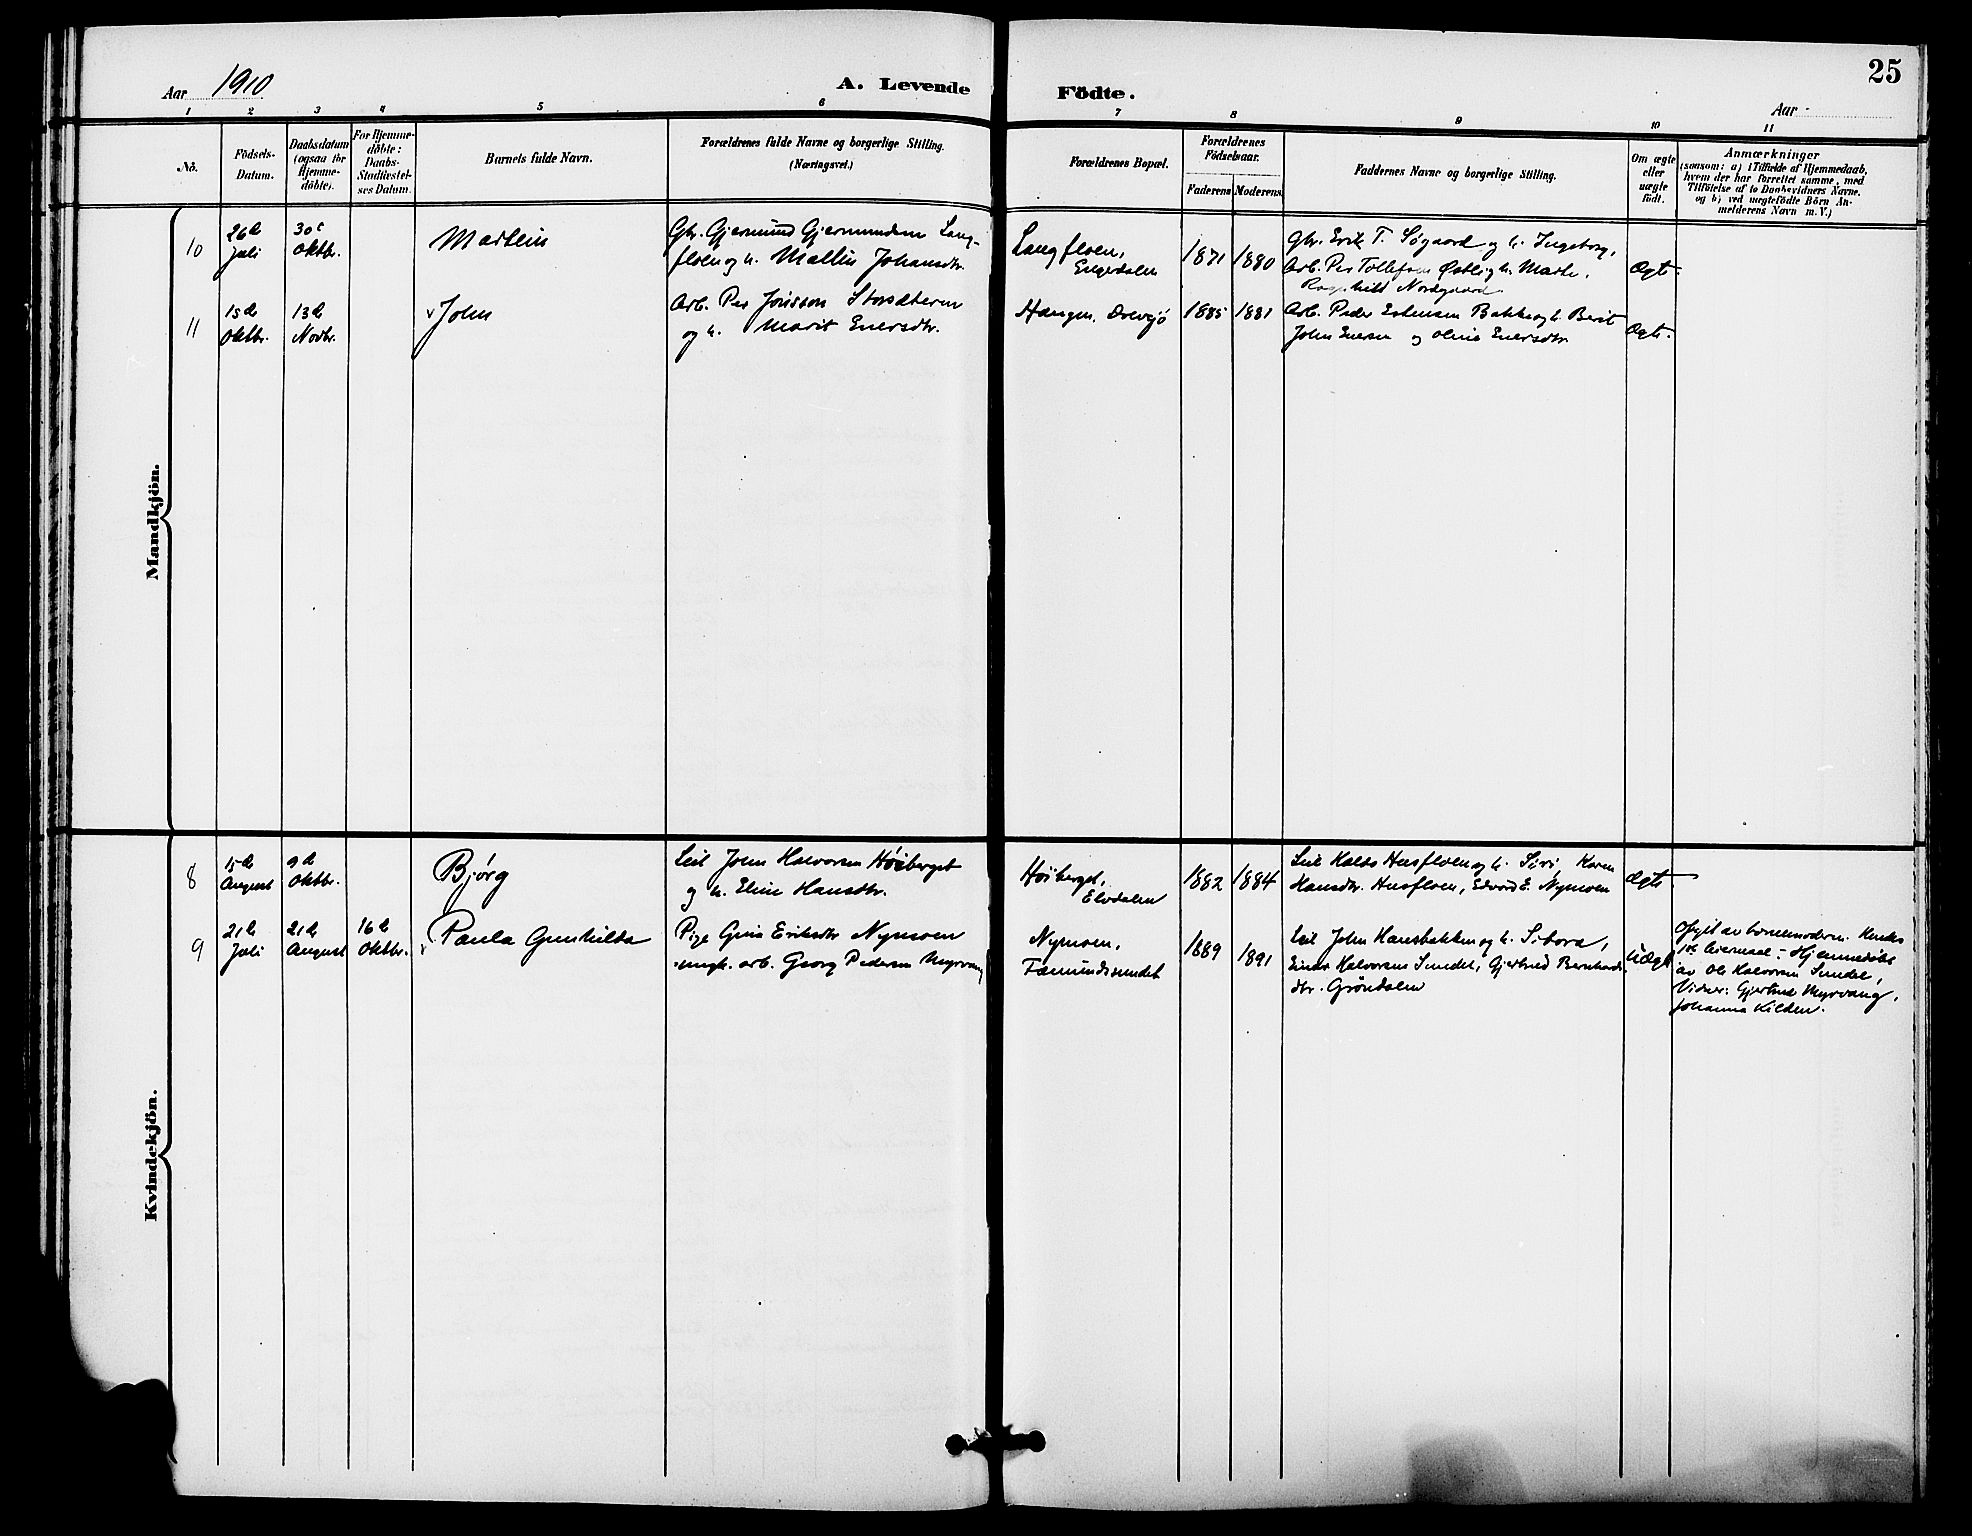 Aar 1910
A. Levende Födte.
25
Aar
1 2 3 4 5 6 7 8 9 10 11
No.
Födsels-
Datum.
Daabsdatum
(ogsaa for
Hjemme-
döbte).
For Hjemme-
döbte:
Daabs-
Stadfæstel-
ses Datum.
Barnets fulde Navn.
Forældrenes fulde Navne og borgerlige Stilling.
(Næringsvei.)
Forældrenes Bopæl.
Forældrenes
Födselsaar.
Faderens
Moderens
Faddernes Navne og borgerlige Stilling.
Om ægte
eller
uægte
födt.
Anmærkninger
(saasom: a) i Tilfælde af Hjemmedaab,
hvem der har forrettet samme, med
Tilföielse af to Daabsvidners Navne,
og b) ved uægtefödte Börn An-
melderens Navn m. V.)
Mandkjön.
10
26de
Juli
30te
Oktbr.
Martein
Gbr. Gjermund Gjermundsen Lang-
floen og h. Mallin Johansdtr.
Langfloen,
Engerdalen
1871
1880
Gbr. Erik T. Søgaard og h. Ingeborg,
Arb. Per Tollefsen Østlig h. Marte,
Ragnhild Nordgaard
Ægte
11
15de
Oktbr.
13de
Novbr.
John
Arb. Per Jonsson Storsæteren
og h. Marit Enersdtr.
Haugen, Drevsjø
1885
1881
Arb. Peder Estensen Bakke og h. Berit
John Enersen og Oline Enersdtr.
Ægte.
Kvindekjön.
8
15de
August
9de
Oktbr.
Bjørg
Leil John Halvorsen Høiberget
og h. Eline Hansdtr.
Høiberget,
Elvdalen
1882
1884
Leil Husfloen og h. Siri, Karen
Hansdtr. Husfloen, Edvard E. Nymoen
Ægte
9
21de
Juli
21de
August
16de
Oktbr.
Paula Gunhilda
Pige Gina Eriksdtr Nymoen
ungk. arb. Georg Pedersen Myrvang
Nymoen,
Fæmundssundet
1889
1891
Leil John Haresbakken og h. Sibora,
Einar Halvorsen Sundet, Gjertrud Bernhards-
dtr. Gröndalen
Uægte
Opgit av barnemoderen. Hendes
1ste leiermaal – Hjemmedøbt
av Ole Halvorsen Sundet,
Vidner: Gjertrud Myrvang,
Johanna Kilden.